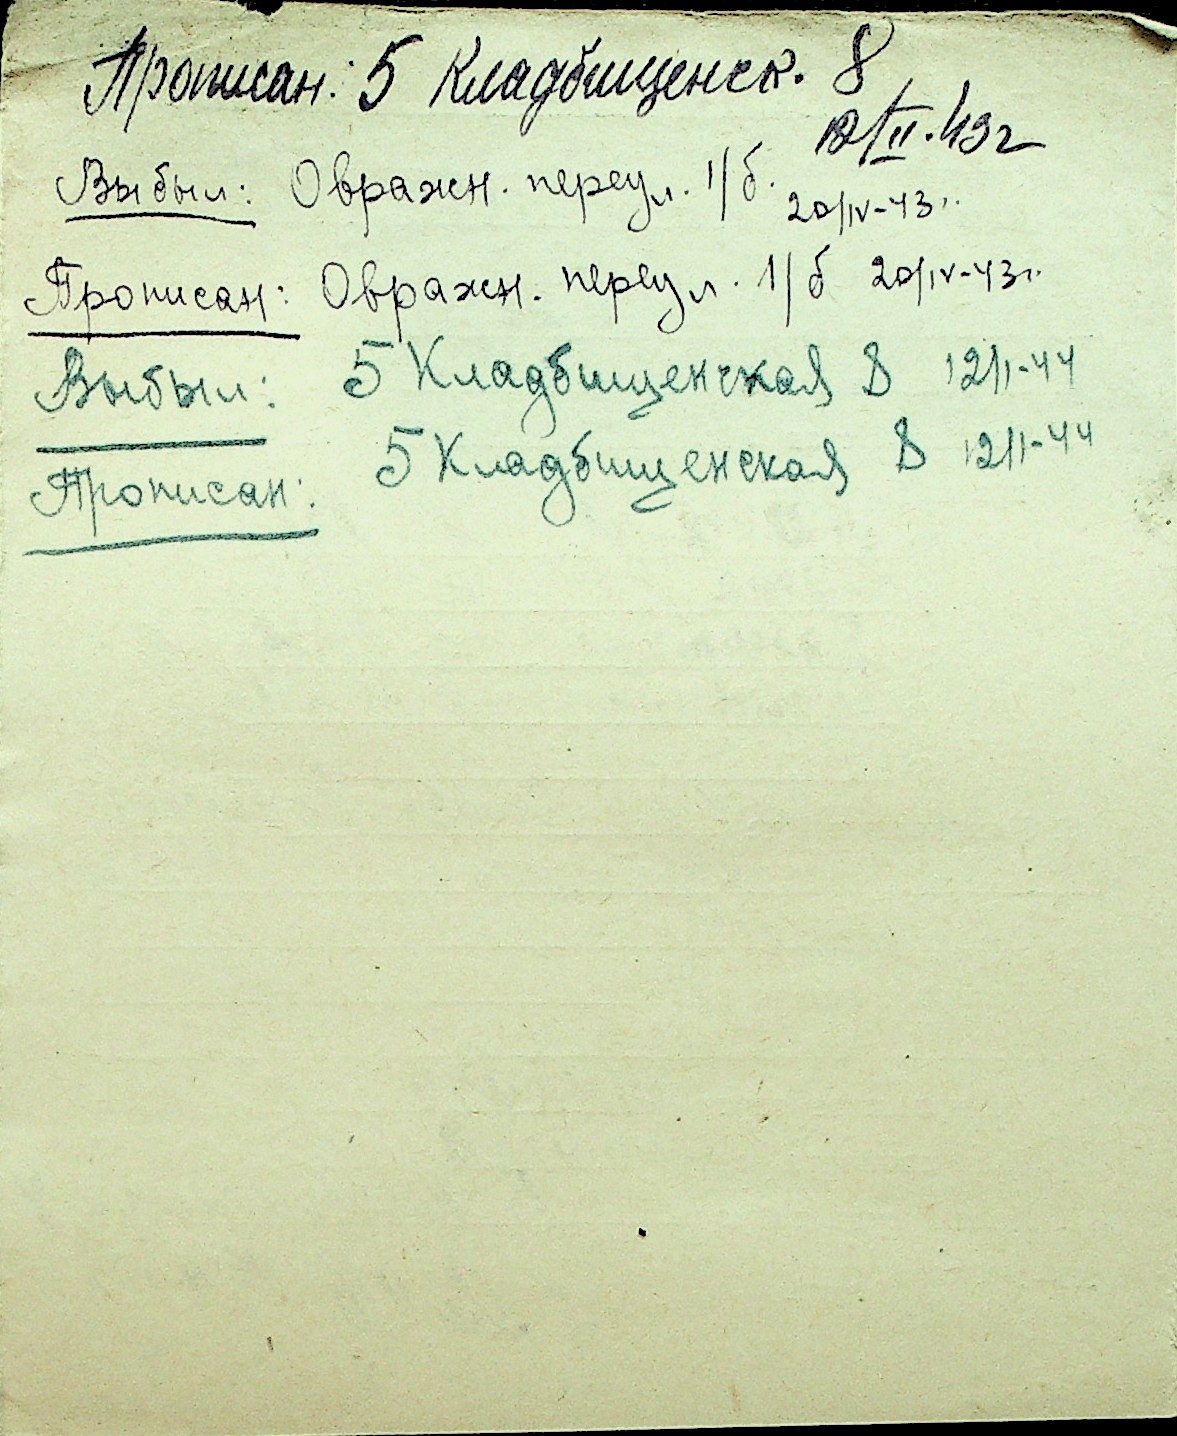 Прописан: 5 Кладбищенск. 8
12/II.43г
Выбыл: Овражн. переул. 1/б. 20/IV-43г.
Прописан: Овражн. переул. 1/б 20/IV-43г.
Выбыл: 5 Кладбищенская 8 12/I-44
Прописан: 5 Кладбищенская 8 12/I-44